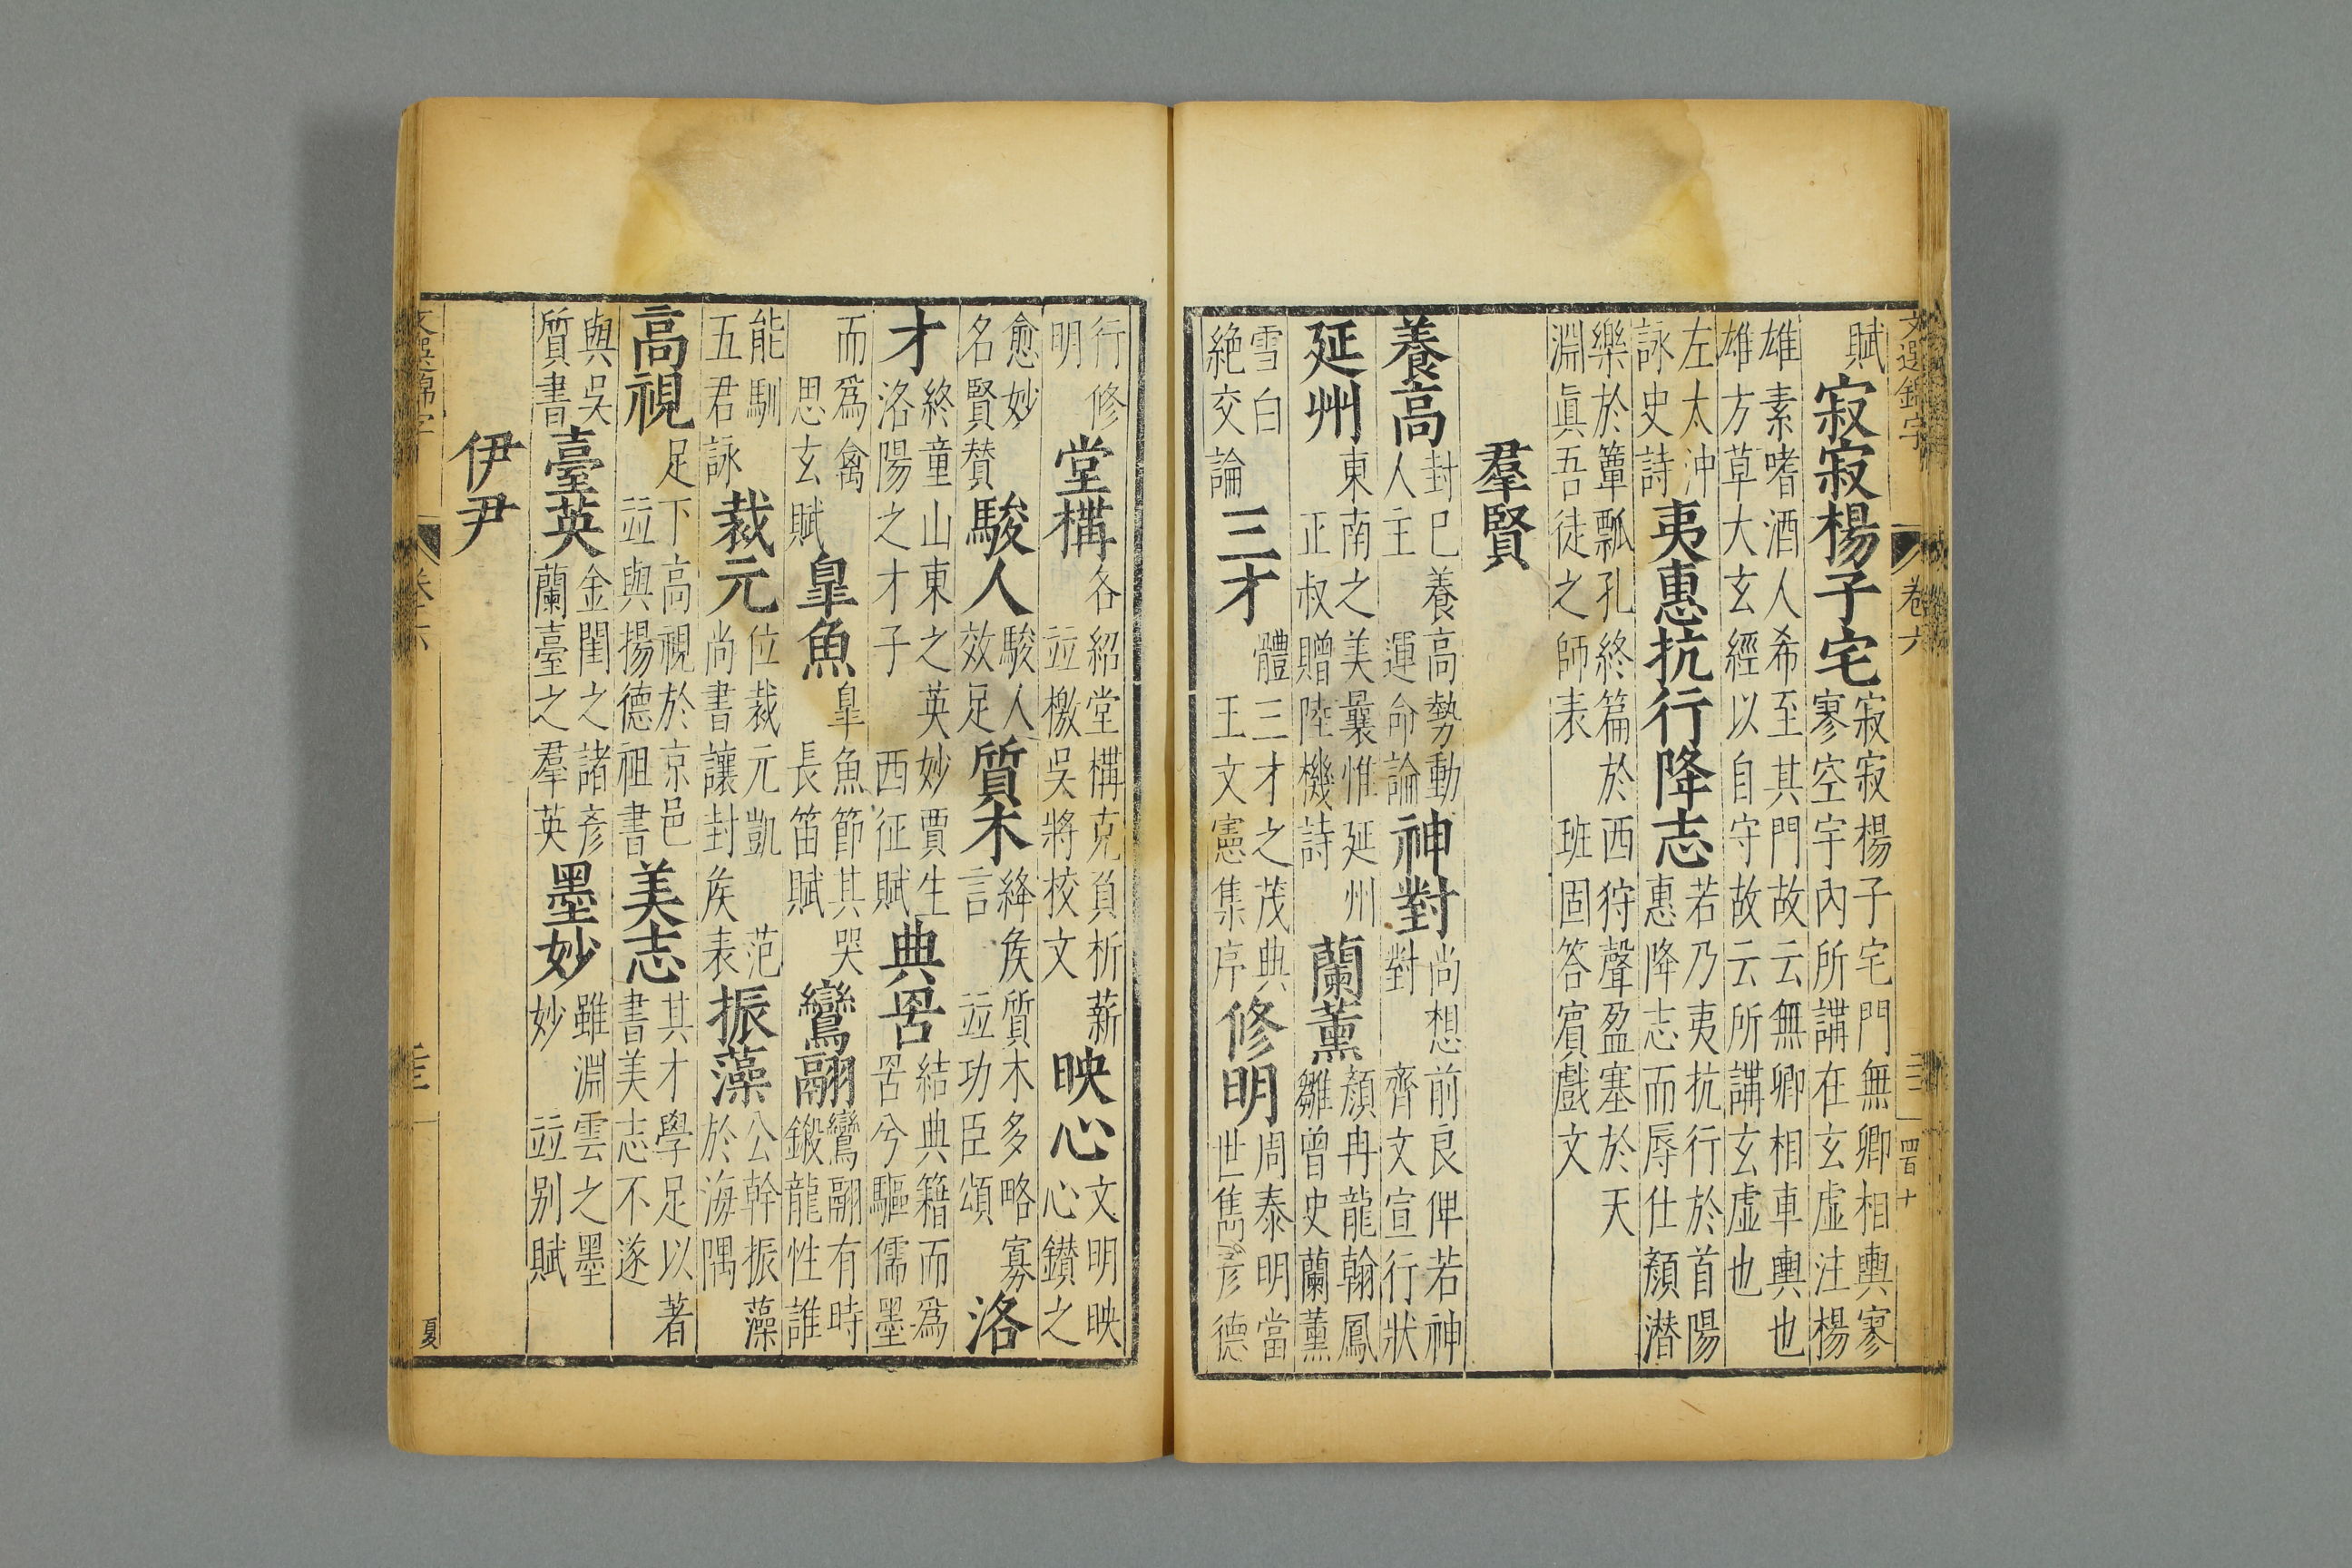 文選錦字 卷六 三 四百十
賦
寂寂楊子宅
寂寂楊子宅門無卿相輿寥
寥空宇內所講在玄虛注楊
雄素嗜酒人希至其門故云無卿相車輿也
雄方草大玄經以自守故云所講玄虛也
左太沖
詠史詩
夷惠抗行降志
若乃夷抗行於首陽
惠降志而辱仕顏潜
樂於簞瓢孔終篇於西狩聲盈塞於天
淵眞吾徒之師表 班固答賓戲文
羣賢
養高
封已養高勢動
人主 運命論
神對
尚想前良俾若神
對 齊文宣行狀
延州
東南之美曩惟延州
正叔贈陸機詩
蘭薰
顏冉龍翰鳳
雛曾史蘭薰
雪白
絶交論
三才
體三才之茂典
王文憲集序
修明
周泰明當
世雋彥德
行修
明
堂構
各紹堂構克負析薪
並檄吳將校文
映心
文明映
心鑚之
愈妙
名賢賛
駿人
駿人
效足
質木
絳侯質木多略寡
言 並功臣頌
洛
才
終童山東之英妙賈生
洛陽之才子 西征賦
典罟
結典籍而爲
罟兮驅儒墨
而爲禽
思玄賦
臯魚
臯魚節其哭
長笛賦
鸞翮
鸞翮有時
鍛龍性誰
能馴
五君詠
裁元
位裁元凱 范
尚書讓封侯表
振藻
公幹振藻
於海隅
高視
足下高視於京邑
並與揚德祖書
美志
其才學足以著
書美志不遂
與吳
質書
臺英
金閨之諸彥
蘭臺之羣英
墨妙
雖淵雲之墨
妙 並別賦
伊尹
文選錦字 卷六 夏